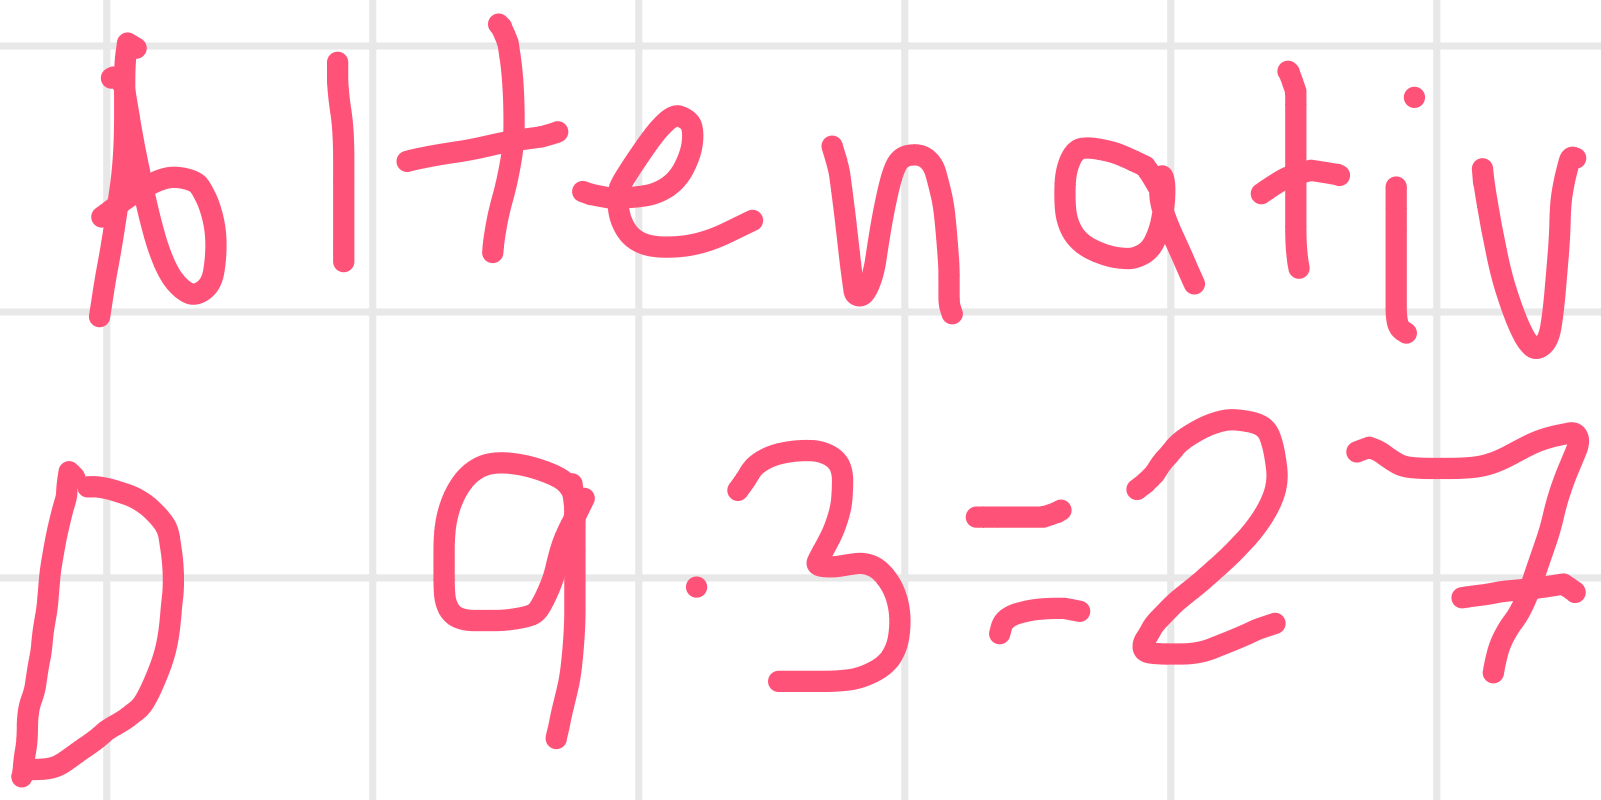 Altenativ
D 9·3=27